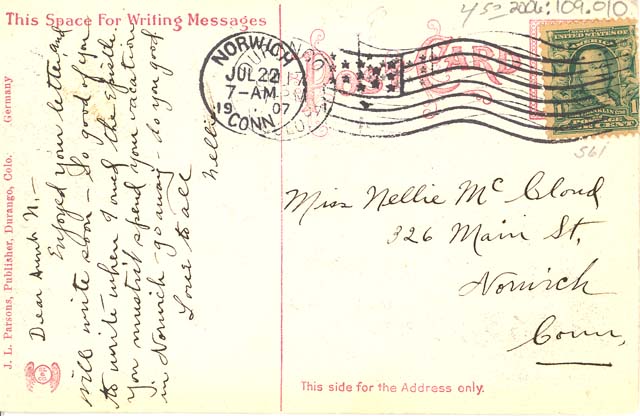 This Space For Writing Messages
450 2006.109.010
POST CARD
NORWICH
JUL 22
7-AM
19 07
CONN
561
Dear Aunt N. —
Enjoyed your letter and
will write soon — So good of you
to write when I owed the epistle.
You mustn't spend your vacation
in Norwich — go away — do you good
Love to all
Nellie
Miss Nellie McCloud
326 Main St,
Norwich
Conn,
J. L. Parsons, Publisher, Durango, Colo. Germany
This side for the Address only.